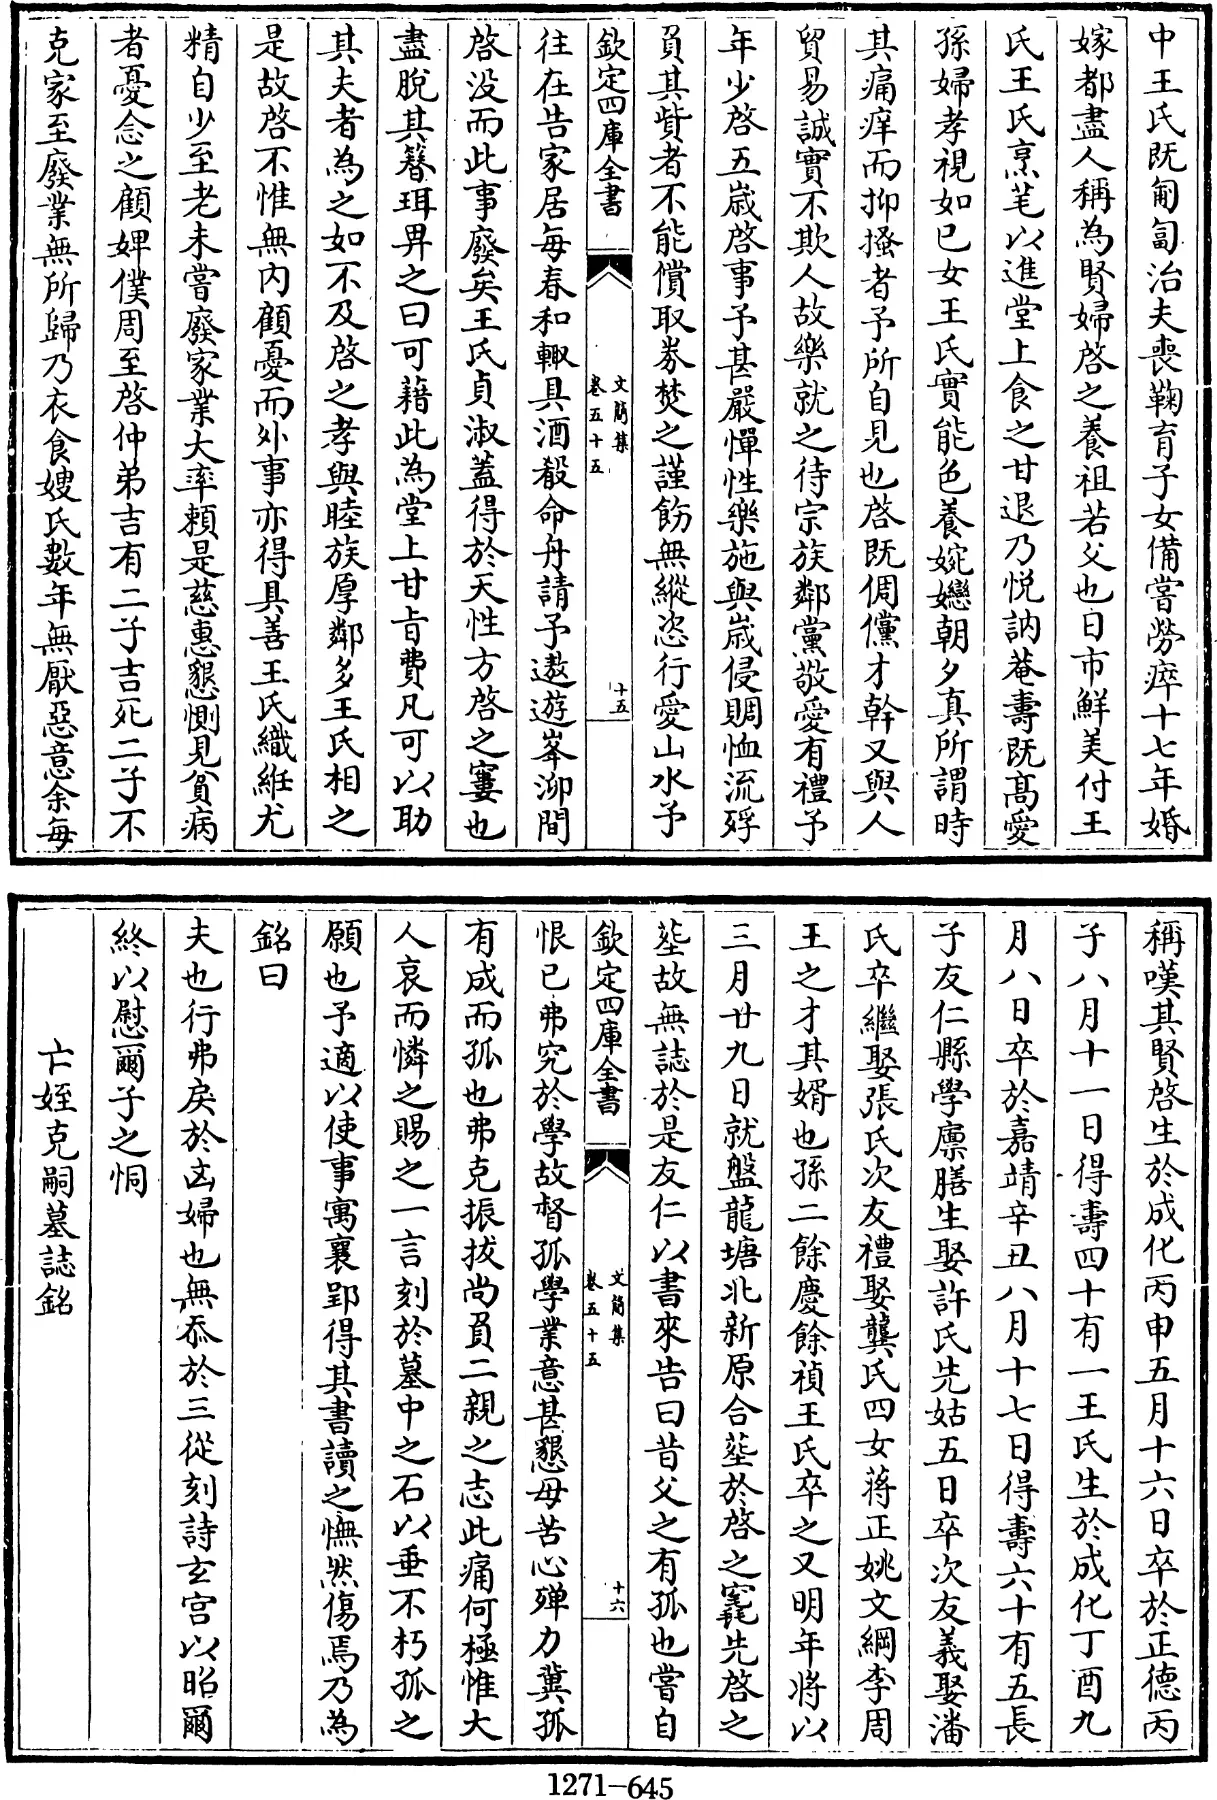 中王氏既匍匐治夫喪鞠育子女備嘗勞瘁十七年婚
嫁都盡人稱為賢婦啓之養祖若父也日市鮮美付王
氏王氏烹芼以進堂上食之甘退乃悦訥菴壽既髙愛
孫婦孝視如已女王氏實能色養婉孌朝夕真所謂時
其痛痒而抑搔者予所自見也啓既倜儻才幹又與人
貿易誠實不欺人故樂就之待宗族鄰黨敬愛有禮予
年少啓五嵗啓事予甚嚴憚性樂施與嵗侵賙恤流殍
負其貲者不能償取劵焚之謹飭無縱恣行愛山水予
欽定四庫全書
文簡集
卷五十五
十五
往在告家居每春和輙具酒殽命舟請予遨遊峯泖間
啓没而此事廢矣王氏貞淑葢得於天性方啓之窶也
盡脫其簪珥畀之曰可藉此為堂上甘㫖費凡可以助
其夫者為之如不及啓之孝與睦族厚鄰多王氏相之
是故啓不惟無内顧憂而外事亦得具善王氏織絍尤
精自少至老未嘗廢家業大率頼是慈惠懇惻見貧病
者憂念之顧婢僕周至啓仲弟吉有二子吉死二子不
克家至廢業無所歸乃衣食嫂氏數年無厭惡意余每
稱嘆其賢啓生於成化丙申五月十六日卒於正德丙
子八月十一日得壽四十有一王氏生於成化丁酉九
月八日卒於嘉靖辛丑八月十七日得壽六十有五長
子友仁縣學廪膳生娶許氏先姑五日卒次友義娶潘
氏卒繼娶張氏次友禮娶龔氏四女蔣正姚文綱李周
王之才其婿也孫二餘慶餘禎王氏卒之又明年將以
三月廿九日就盤龍塘北新原合塟於啓之窀先啓之
塟故無誌於是友仁以書來告曰昔父之有孤也嘗自
欽定四庫全書
文簡集
卷五十五
十六
恨已弗究於學故督孤學業意甚懇母苦心殫力冀孤
有成而孤也弗克振拔尚負二親之志此痛何極惟大
人哀而憐之賜之一言刻於墓中之石以垂不朽孤之
願也予適以使事寓襄郢得其書讀之憮然傷焉乃為
銘曰
夫也行弗戾於凶婦也無忝於三從刻詩玄宫以昭爾
終以慰爾子之恫
亡姪克嗣墓誌銘
1271-645